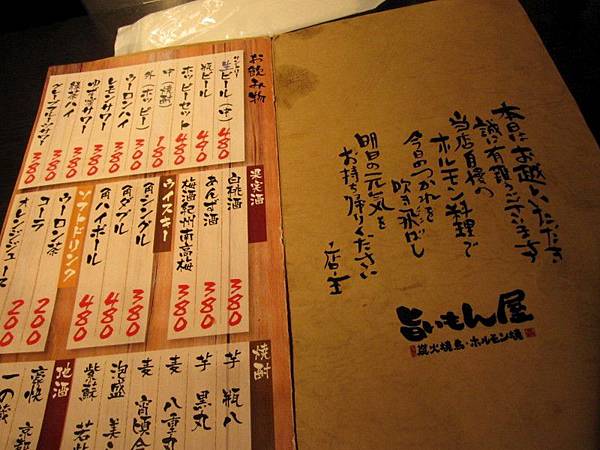 本日はお越しいただき
誠に有難うございます
当店自慢の
ホルモン料理で
今日のつかれを
吹き飛ばし
明日の元気を
お持ち帰りください
店主
旨いもん屋
炭火焼鳥・ホルモン焼
お飲み物
生ビール(中) 480
瓶ビール 490
ホッピーセット 480
中(焼酎) 180
外(ホッピー) 300
ウーロンハイ 380
レモンサワー 380
ゆず蜜サワー 380
緑茶ハイ 380
グレープフルーツサワー 380
果実酒
白桃酒 380
あんず酒 380
梅酒紀州南高梅 380
ウイスキー
角シングル 380
角ダブル 480
角ハイボール 480
ソフトドリンク
ウーロン茶 200
コーラ 200
オレンジジュース 200
焼酎
芋 瓶八
芋 黒丸
麦 八重丸
麦
泡盛 美
紫蘇 若紫
地酒
豪快
一の蔵
京都